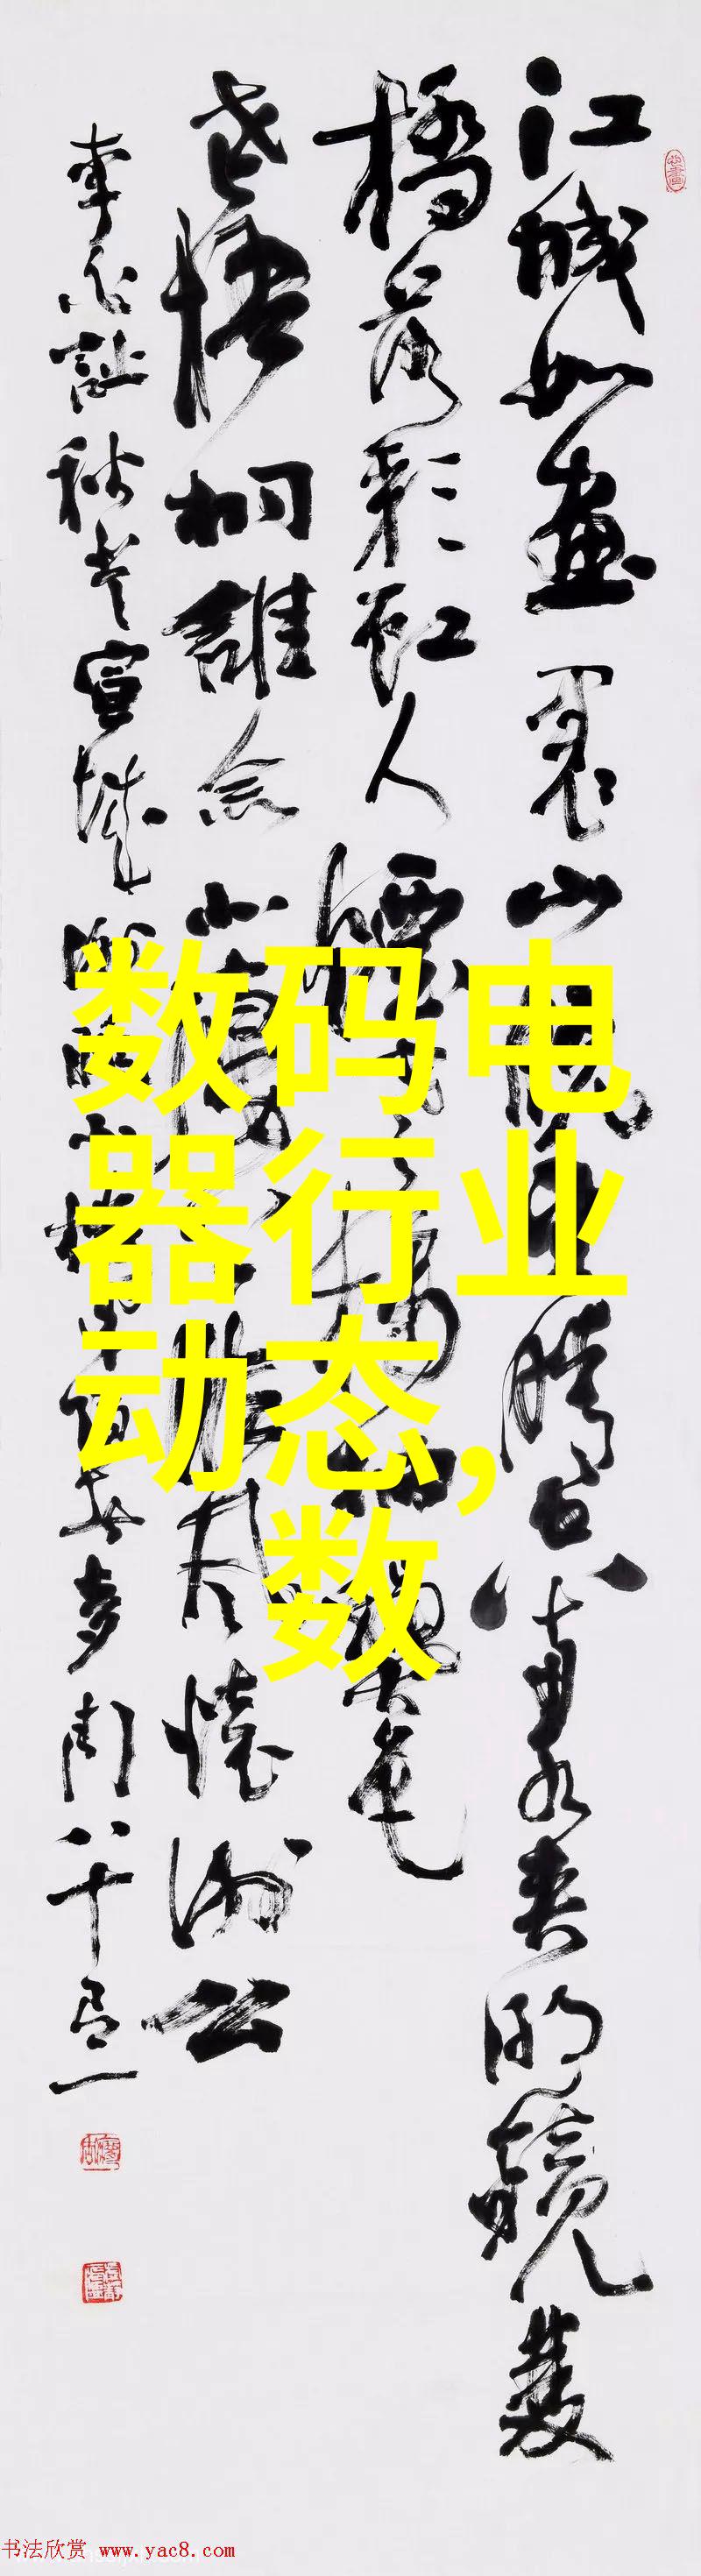 江城如画里山晓望晴空两水夹明镜双
桥落彩虹人烟寒橘柚秋色
老梧桐谁念北楼上临风怀谢公
李白诗秋登宣城谢朓北楼
八十
数码电
器行业
动态,
数
书法欣赏 www.yac8.com